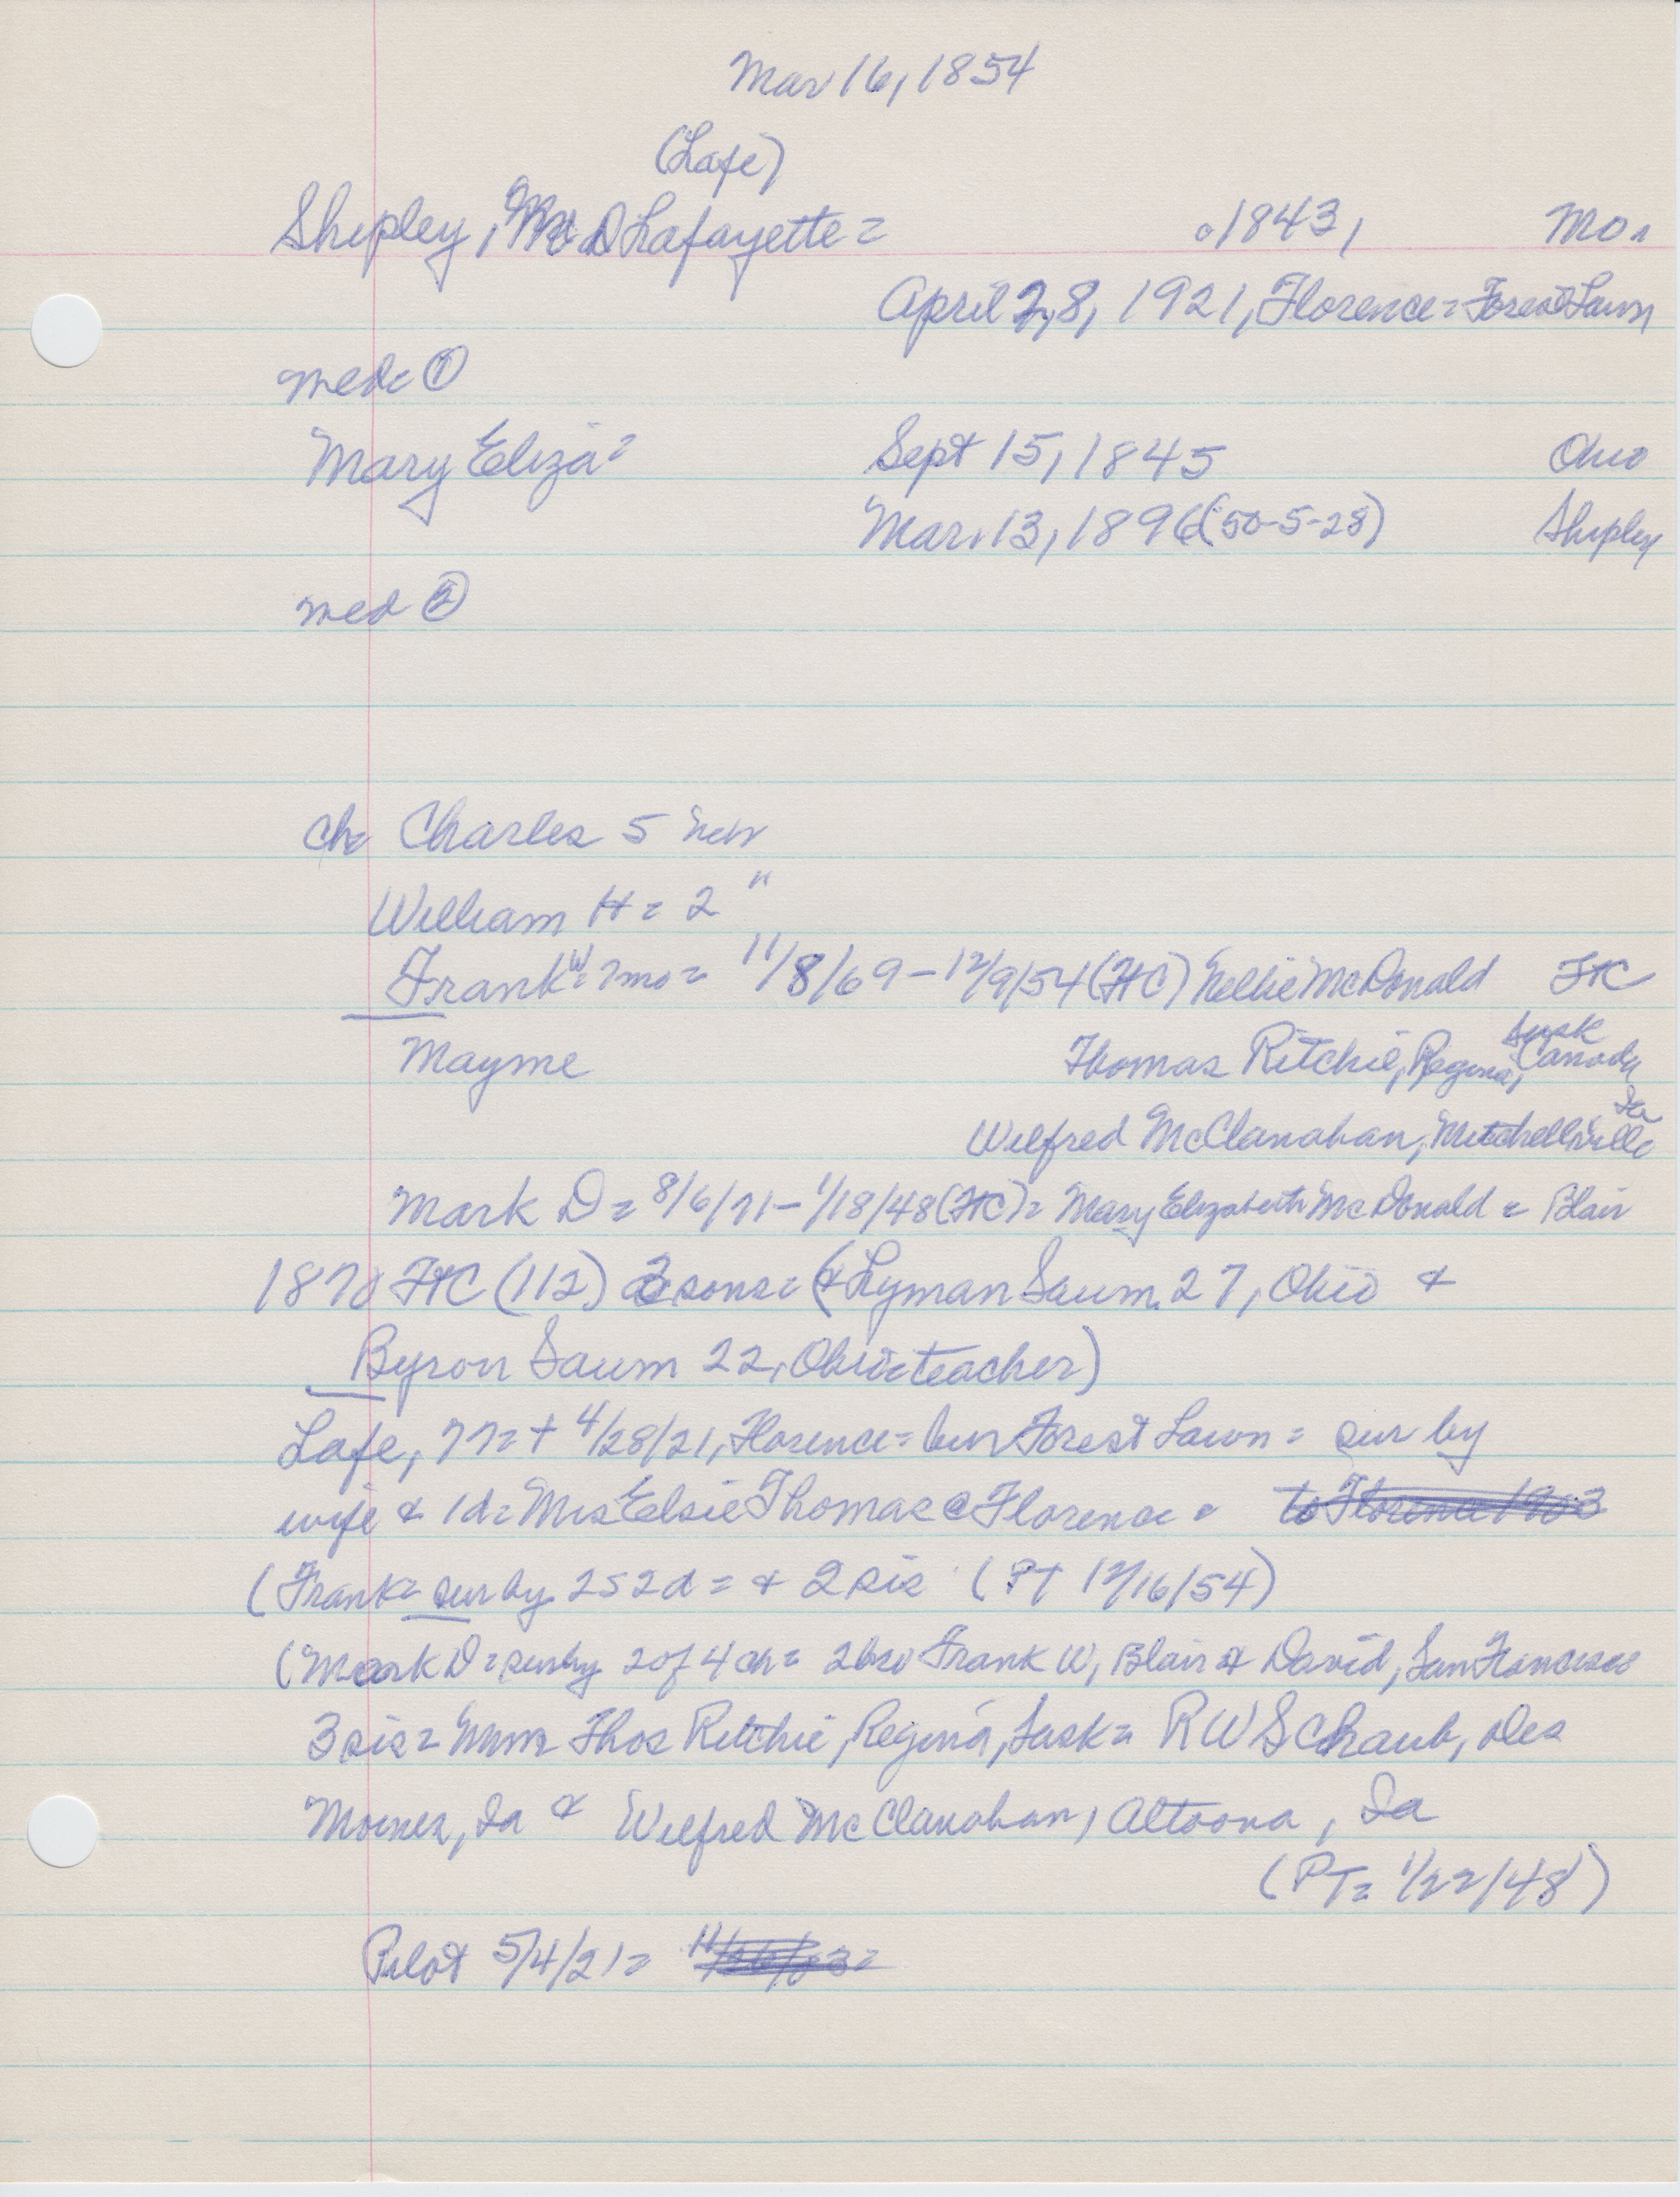 Mar 16, 1854
(Lafe)
Shipley, M D Lafayette = o1843, Mo.
April 28, 1921, Florence = Forest Lawn
med= ①
Mary Eliza = Sept 15, 1845 Ohio
Mar. 13, 1896 (50-5-28) Shipley
med ②
ch= Charles 5 Neb
William H = 2 "
Frank W = 7mo = 11/8/69 - 12/9/54 (FtC) Nellie McDonald FtC
Mayme Thomas Ritchie, Regina, Sask Canada
Wilfred McClanahan, Mitchellville Ia
Mark D = 8/6/71 - 1/18/48 (FtC) = Mary Elizabeth McDonald = Blair
1870 FtC (112) 3 sons = (& Lyman Saum 27, Ohio &
Byron Saum 22, Ohio = teacher)
Lafe, 77 = + 4/28/21, Florence = bur Forest Lawn = sur by
wife & 1d = Mrs Elsie Thomas @ Florence = to Florence 1903
(Frank = sur by 2s 2d = & 2 sis (PT 12/16/54)
(Mark D = sur by 2 of 4 ch = 2 bro Frank W, Blair & David, San Francisco
3 sis = Mmes Thos Ritchie, Regina, Sask = R W Schaub, Des
Moines, Ia & Wilfred McClanahan, Altoona, Ia
(PT = 1/22/48)
Pilot 5/4/21 =